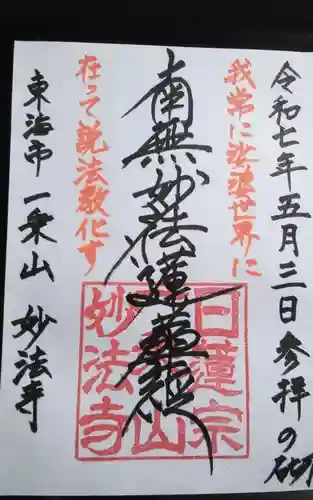 令和七年五月三日参拝の砌
我常に此娑婆世界に
南無妙法蓮華経
在って説法教化す
東海市 一乗山 妙法寺
日蓮宗
一乗山
妙法寺